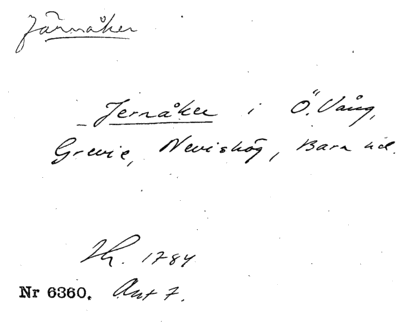 Järnåker
Jernåker i Ö. Vång,
Grevie, Nevishög, Bara hd.
Lh. 1784
Nr 6360. Ant 7.